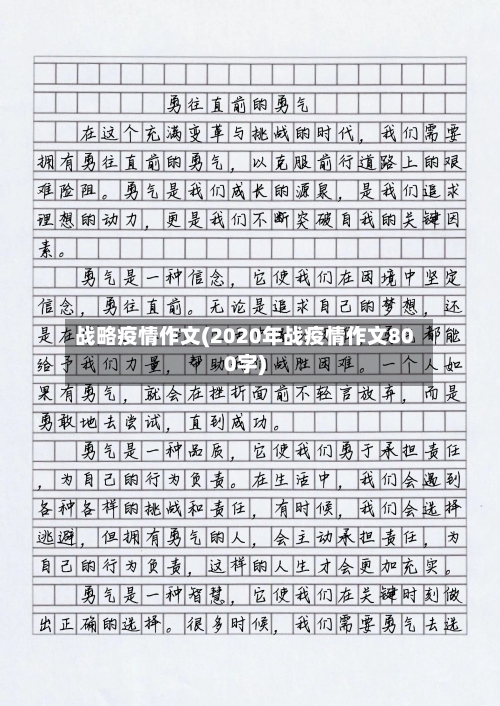 勇往直前的勇气
在这个充满变革与挑战的时代，我们需要
拥有勇往直前的勇气，以克服前行道路上的艰
难险阻。勇气是我们成长的源泉，是我们追求
理想的动力，更是我们不断突破自我的关键因
素。
勇气是一种信念，它使我们在困境中坚定
信念，勇往直前。无论是追求自己的梦想，还
是在
都能
战略疫情作文(2020年战疫情作文80
0字)
给予我们力量，帮助
战胜困难。一个人如
果有勇气，就会在挫折面前不轻言放弃，而是
勇敢地去尝试，直到成功。
勇气是一种品质，它使我们勇于承担责任
，为自己的行为负责。在生活中，我们会遇到
各种各样的挑战和责任，有时候，我们会选择
逃避，但拥有勇气的人，会主动承担责任，为
自己的行为负责，这样的人生才会更加充实。
勇气是一种智慧，它使我们在关键时刻做
出正确的选择。很多时候，我们需要勇气去选